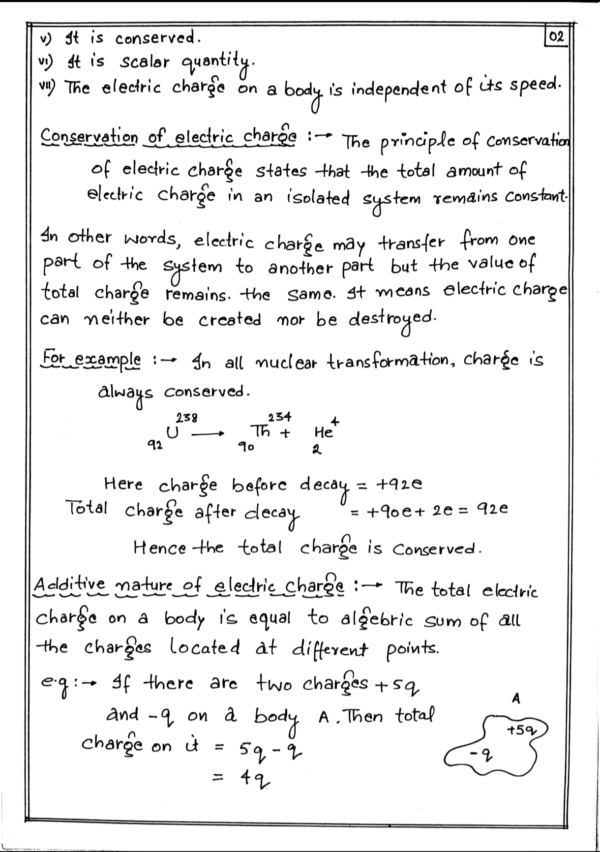 02
v) It is conserved.
vi) It is scalar quantity.
vii) The electric charge on a body is independent of its speed.
Conservation of electric charge :→ The principle of conservation
of electric charge states that the total amount of
electric charge in an isolated system remains constant.
In other words, electric charge may transfer from one
part of the system to another part but the value of
total charge remains. the same. It means electric charge
can neither be created nor be destroyed.
For example :→ In all nuclear transformation, charge is
always conserved.
₉₂U²³⁸ ⟶ ₉₀Th²³⁴ + ₂He⁴
Here charge before decay = +92e
Total charge after decay = +90e + 2e = 92e
Hence the total charge is conserved.
Additive nature of electric charge :→ The total electric
charge on a body is equal to algebric sum of all
the charges located at different points.
e.g :→ If there are two charges +5q
and -q on a body A. Then total
charge on it = 5q - q
= 4q
A
+5q
-q